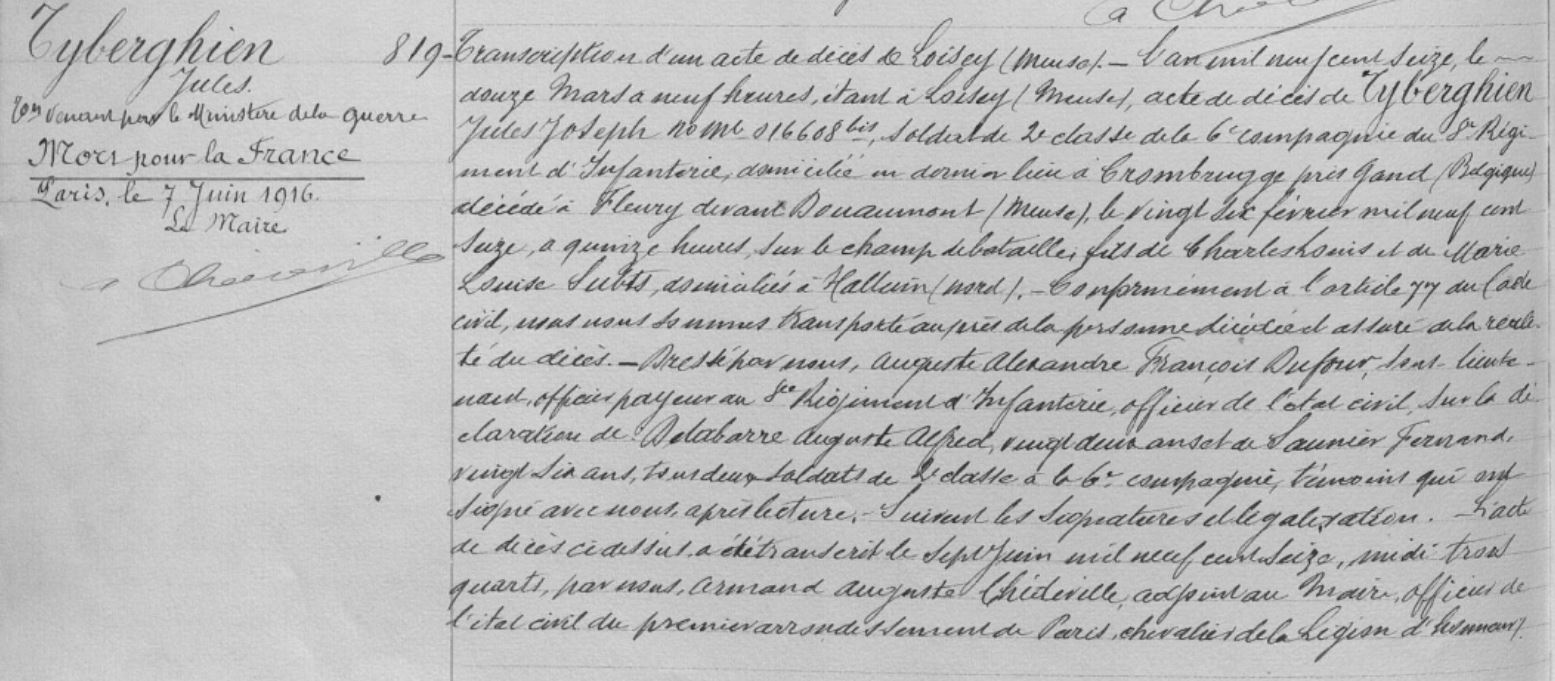 Tyberghien
Jules.
venant par le Ministère de la guerre
Mort pour la France
Paris, le 7 Juin 1916.
Le Maire
819 - Transcription d'un acte de décès de Loisey (Meuse). - L'an mil neuf cent seize, le
douze Mars a neuf heures, étant à Loisey (Meuse), acte de décès de Tyberghien
Jules Joseph no Mle 016608 bis, soldat de 2e classe de la 6e compagnie du 8e Régi-
ment d'Infanterie, domicilié en dernier lieu à Crombrugge près Gand (Belgique)
décédé à Fleury devant Douaumont (Meuse), le vingt six février mil neuf cent
seize, a quinze heures, sur le champ de bataille, fils de Charles Louis et de Marie
Louise Subts, domiciliés à Halluin (nord). - Conformément à l'article 77 du Code
civil, nous nous sommes transporté auprès de la personne décédée et assuré de la réali-
té du décès. - Dressé par nous, Auguste Alexandre François Dufour, sous-lieute-
nant, officier payeur au 8e Régiment d'Infanterie, officier de l'état civil, sur la dé
claration de Delabarre Auguste Alfred, vingt deux ans et de Saunier Fernand,
vingt six ans, tous deux soldats de 2e classe à la 6e compagnie, témoins qui ont
signé avec nous, après lecture. - Suivent les signatures et légalisation. - L'acte
de décès ci dessus a été transcrit le sept Juin mil neuf cent seize, midi trois
quarts, par nous, Armand Auguste Chédeville, adjoint au Maire, officier de
l'état civil du premier arrondissement de Paris, chevalier de la Légion d'honneur).